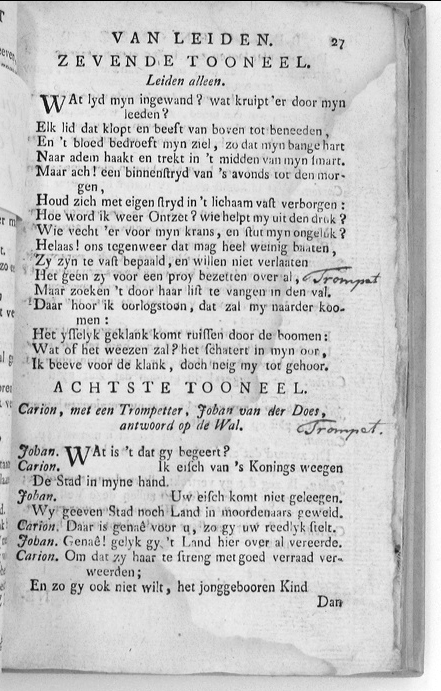 VAN LEIDEN. 27
ZEVENDE TOONEEL.
Leiden alleen.
WAt lyd myn ingewand? wat kruipt 'er door myn
leeden?
Elk lid dat klopt en beeft van boven tot beneeden,
En 't bloed bedroeft myn ziel, zo dat myn bange hart
Naar adem haakt en trekt in 't midden van myn smart.
Maar ach! een binnenstryd van 's avonds tot den mor-
gen,
Houd zich met eigen stryd in 't lichaam vast verborgen:
Hoe word ik weer Ontzet? wie helpt my uit den druk?
Wie vecht 'er voor myn krans, en stut myn ongeluk?
Helaas! ons tegenweer dat mag heel weinig baaten,
Zy zyn te vast bepaald, en willen niet verlaaten
Het geen zy voor een proy bezetten over al, Trompet
Maar zoeken 't door haar list te vangen in den val.
Daar hoor ik oorlogstoon, dat zal my naarder koo-
men:
Het ysselyk geklank komt ruissen door de boomen:
Wat of het weezen zal? het schatert in myn oor,
Ik beeve voor de klank, doch neig my tot gehoor.
ACHTSTE TOONEEL.
Carion, met een Trompetter, Johan van der Does,
antwoord op de Wal. Trompet.
Johan. WAt is 't dat gy begeert?
Carion. Ik eisch van 's Konings weegen
De Stad in myne hand.
Johan. Uw eisch komt niet geleegen.
Wy geeven Stad noch Land in moordenaars geweld.
Carion. Daar is genaê voor u, zo gy uw reedlyk stelt.
Johan. Genaê! gelyk gy 't Land hier over al vereerde.
Carion. Om dat zy haar te streng met goed verraad ver-
weerden;
En zo gy ook niet wilt, het jonggebooren Kind
Dan